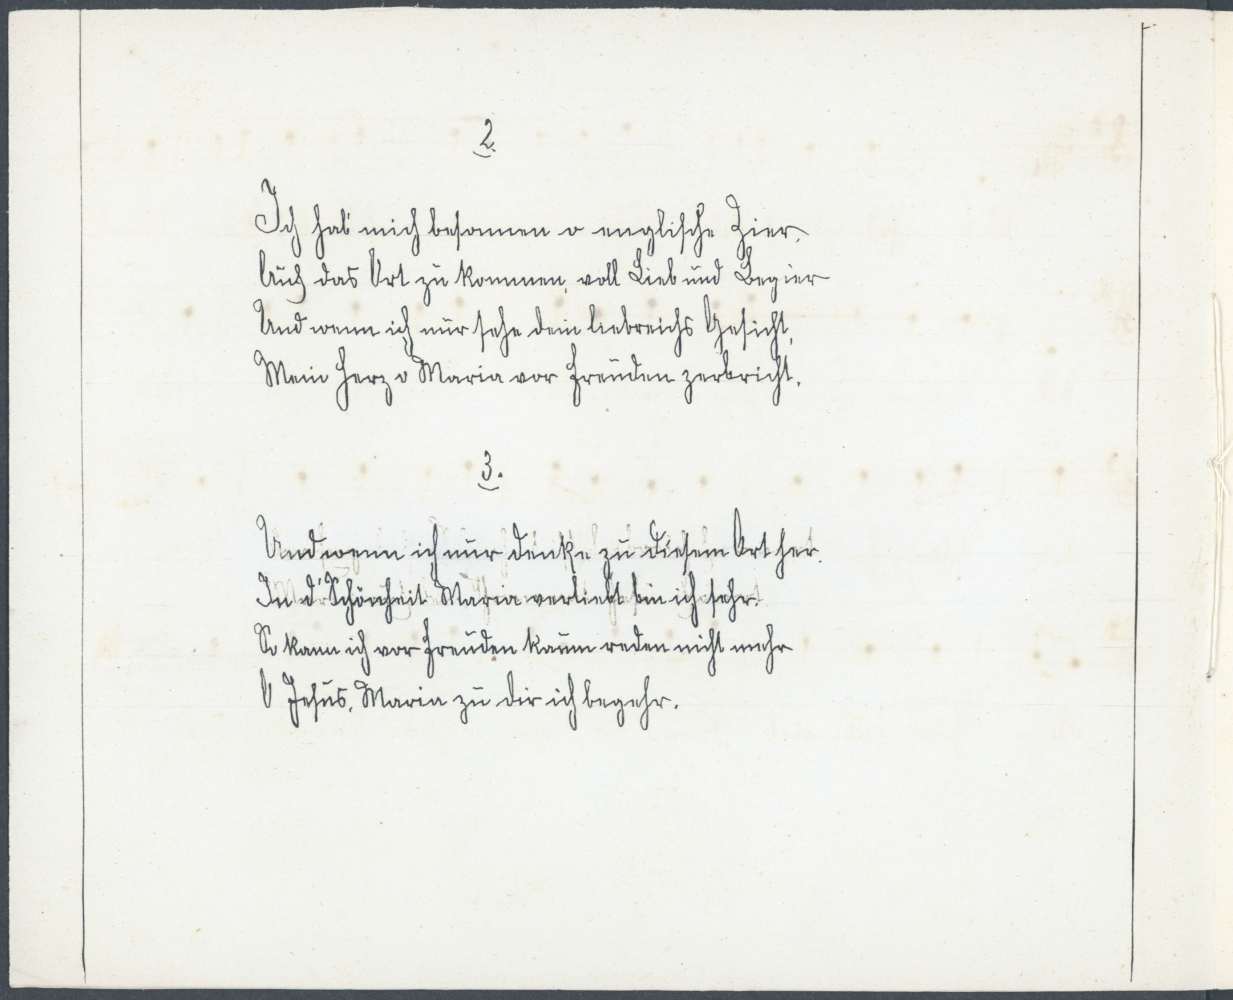 2.
Ich hab' mich besonnen o englische Zier.
Auch das Ort zu kommen, voll Lieb und Begier
Und wenn ich nur sehe dein liebreichs Gesicht,
Mein Herz o Maria vor Freuden zerbricht.
3.
Und wenn ich nur denke zu diesem Ort her.
In d' Schönheit Maria verliebt bin ich sehr.
So kann ich vor Freuden kaum reden nicht mehr
O Jesus, Maria zu dir ich begehr.